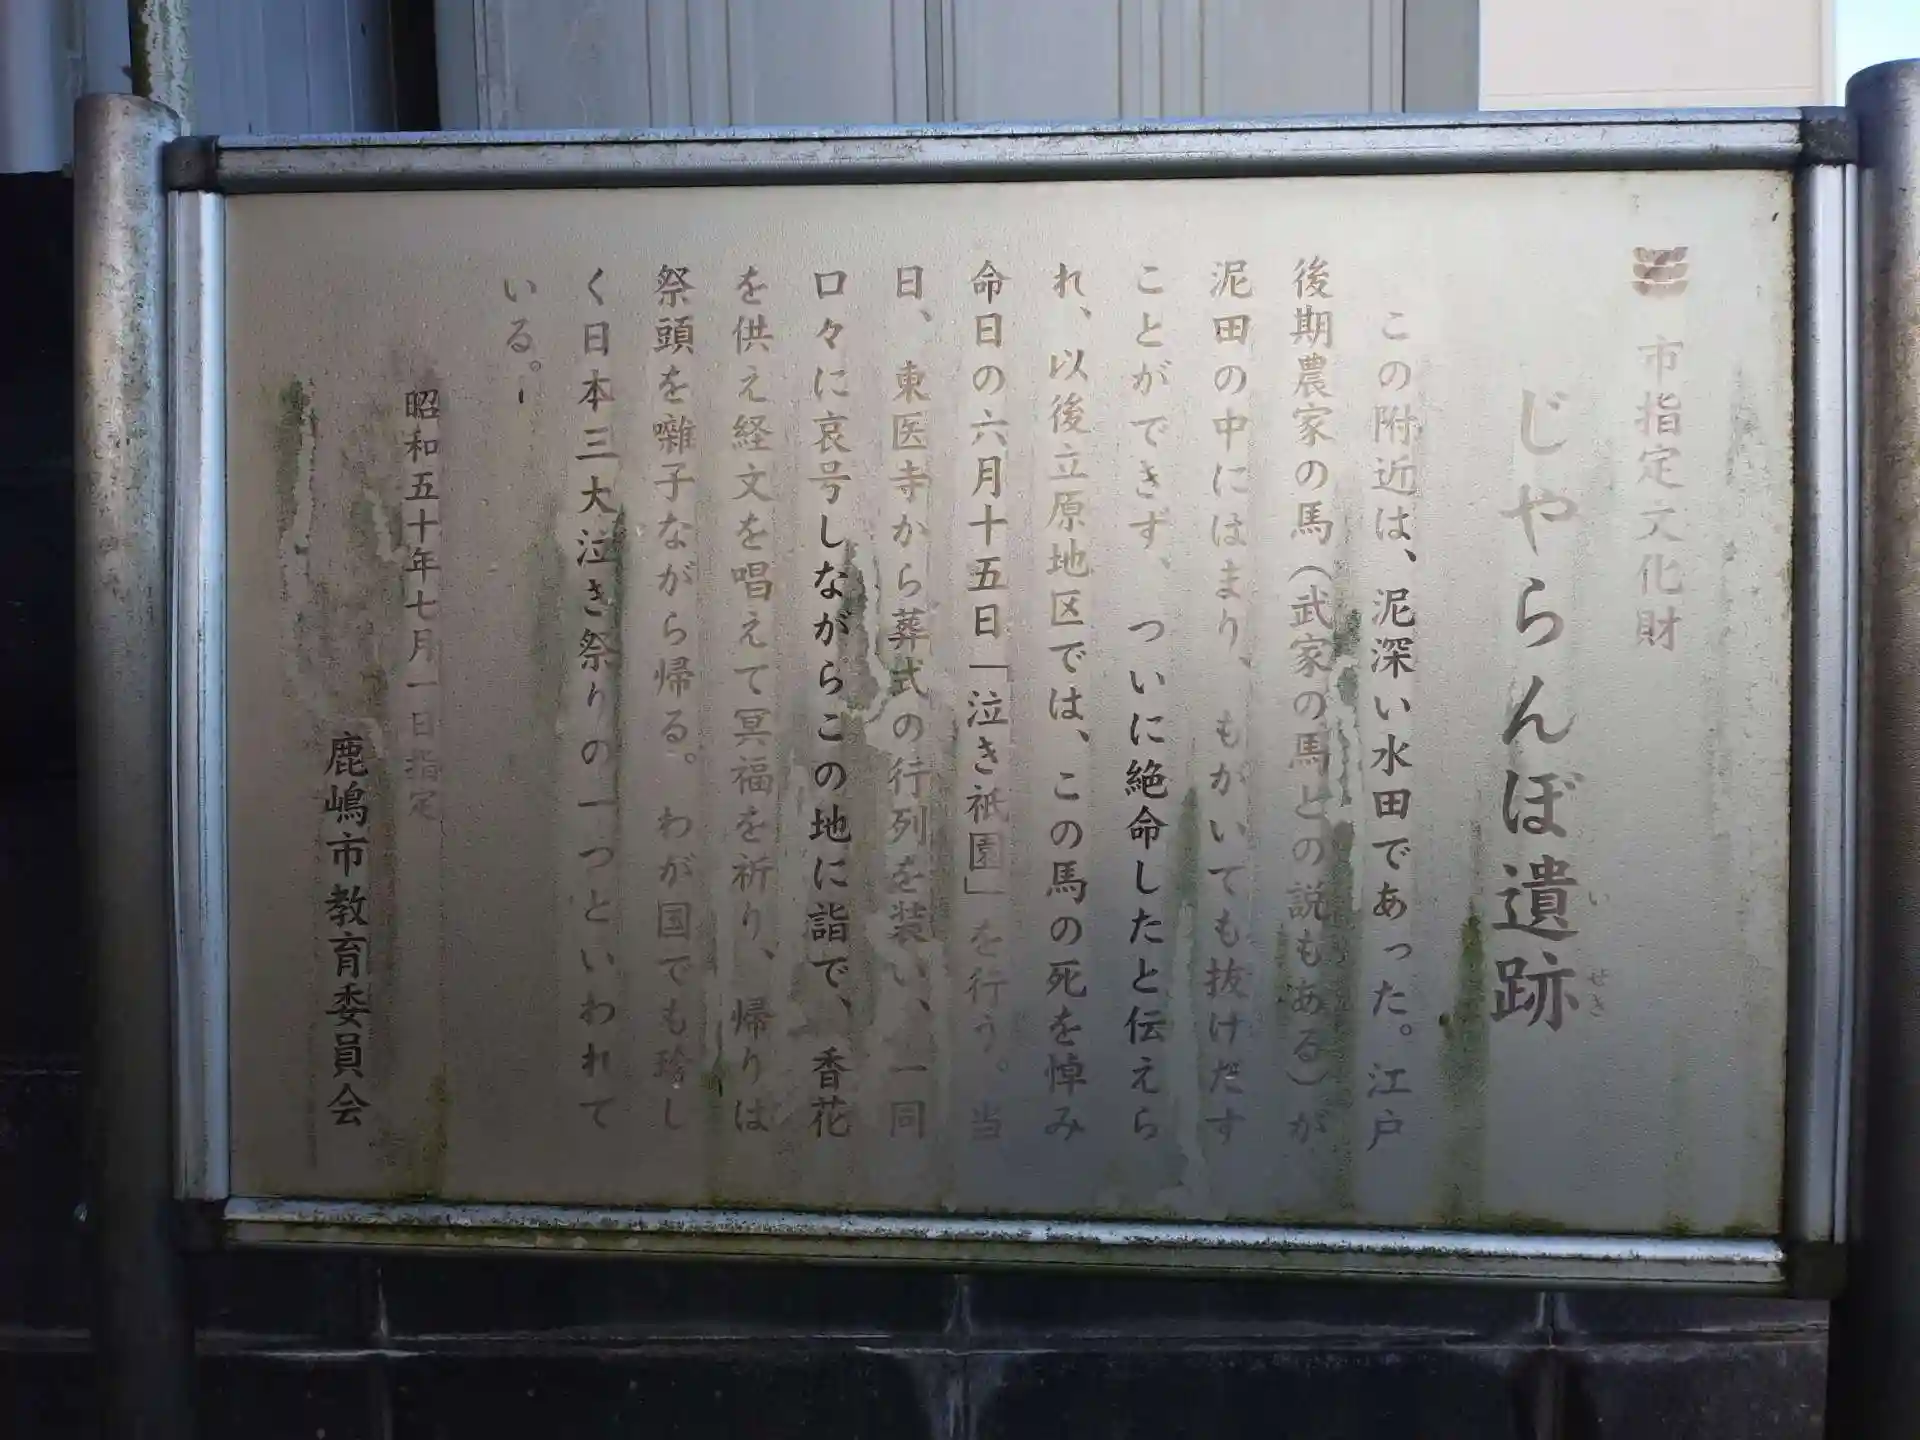 市指定文化財
じゃらんぼ遺跡
いせき
この附近は、泥深い水田であった。江戸
後期農家の馬(武家の馬との説もある)が
泥田の中にはまり、もがいても抜けだす
ことができず、ついに絶命したと伝えら
れ、以後立原地区では、この馬の死を悼み
命日の六月十五日「泣き祇園」を行う。当
日、東医寺から葬式の行列を装い、一同
口々に哀号しながらこの地に詣で、香花
を供え経文を唱えて冥福を祈り、帰りは
祭頭を囃子ながら帰る。わが国でも珍し
く日本三大泣き祭りの一つといわれて
いる。
昭和五十年七月一日指定
鹿嶋市教育委員会